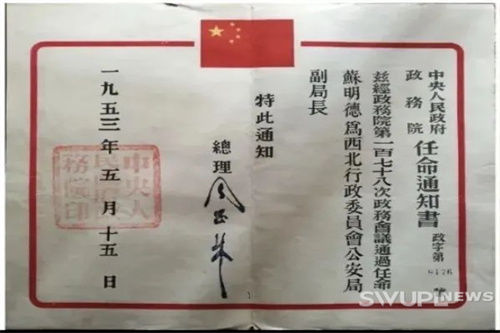 中央人民政府
政務院
任命通知書
政字第
號
茲經政務院第一百七十八次政務會議通過任命
蘇明德爲西北行政委員會公安局
副局長
特此通知
總理 周恩來
一九五三年五月十五日
中央人民政府政務院印
SWUPL NEWS